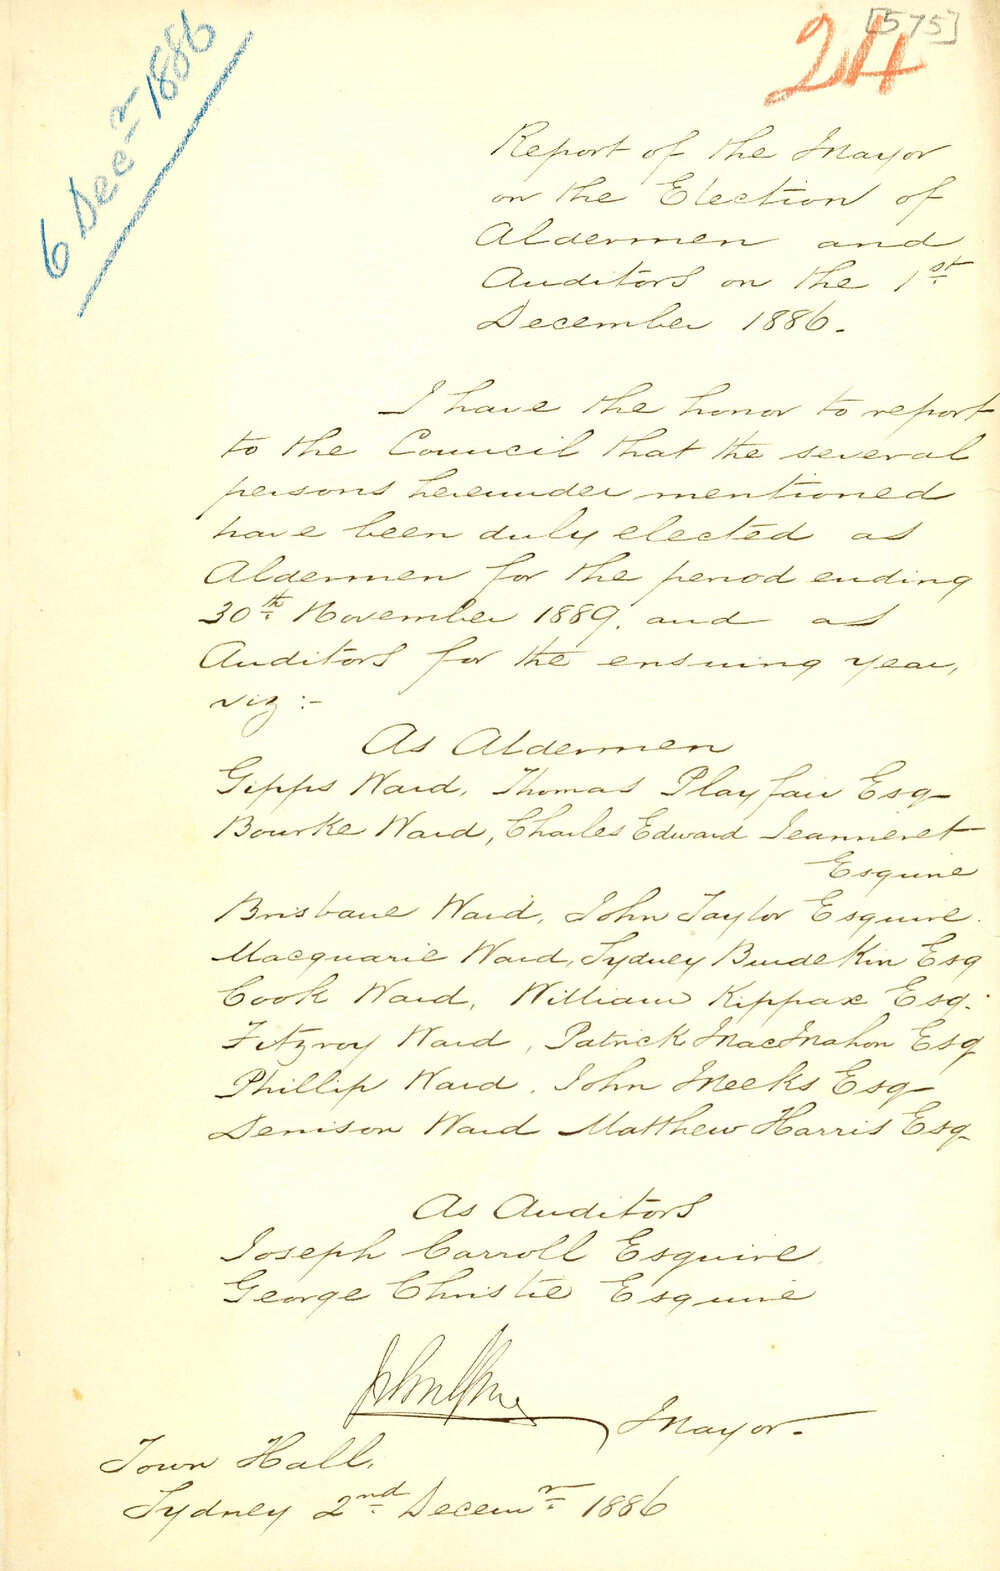 6 Decr 1886
[575]
24
Report of the Mayor
on the Election of
Aldermen and
Auditors on the 1st
December 1886.
I have the honor to report
to the Council that the several
persons hereunder mentioned
have been duly elected as
Aldermen for the period ending
30th November 1889. and as
Auditors for the ensuing year,
viz :-
As Aldermen
Gipps Ward, Thomas Playfair Esq
Bourke Ward, Charles Edward Jeanneret
Esquire
Brisbane Ward, John Taylor Esquire.
Macquarie Ward, Sydney Burdekin Esq
Cook Ward, William Kippax Esq.
Fitzroy Ward, Patrick MacMahon Esq
Phillip Ward. John Meeks Esq
Denison Ward Matthew Harris Esq.
As Auditors
Joseph Carroll Esquire
George Christie Esquire
Mayor.
Town Hall,
Sydney 2nd Decemr 1886